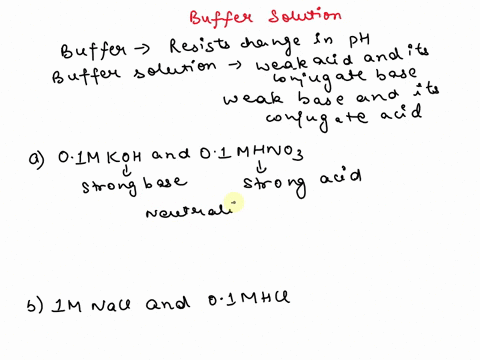 Buffer Solution
Buffer → Resists change in pH
Buffer solution → weak acid and its
conjugate base
weak base and its
conjugate acid
a) 0.1M KOH and 0.1 M HNO3
↓ ↓
strong base strong acid
Neutrali
b) 1M NaCl and 0.1 M HCl